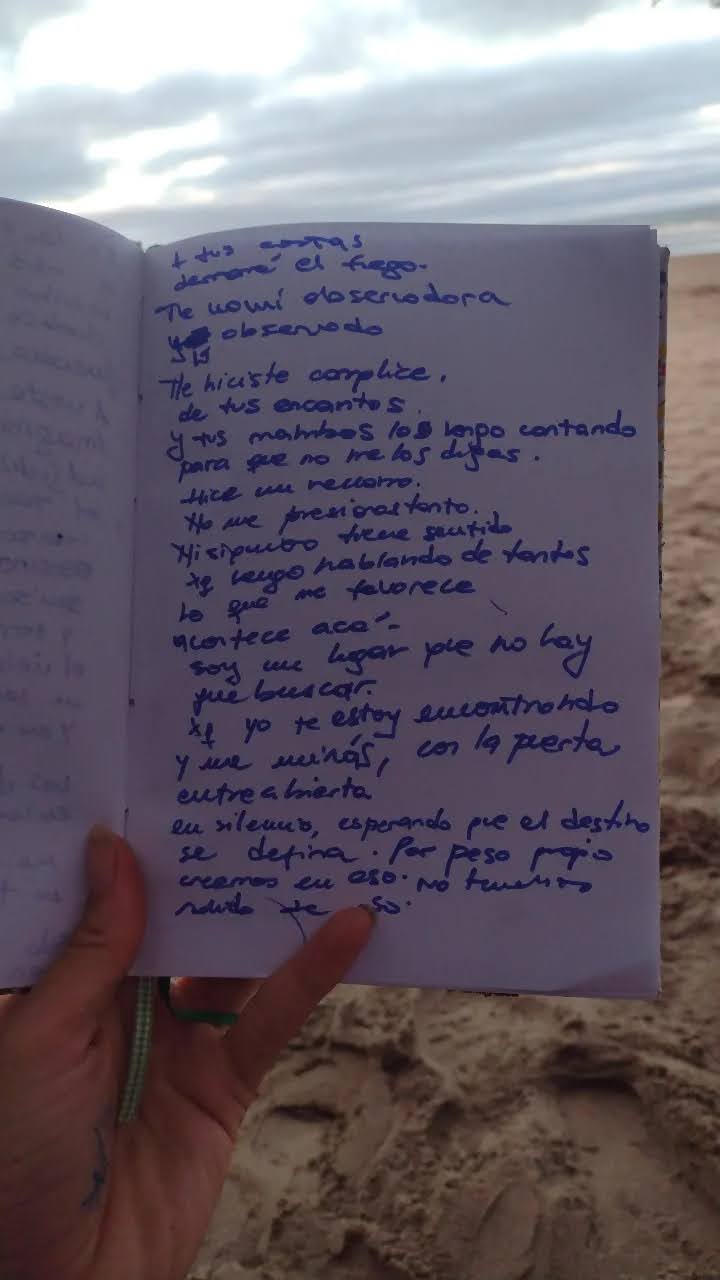 + tus costas
derramé el fuego.
Me volví observadora
y observado
Me hiciste complice.
de tus encantos.
y tus mambos los tengo contando
para que no me los digas.
Hice un recorro.
No me presionas tanto.
Mi siquiera tiene sentido
xq vengo hablando de tantos
lo que me favorece
acontece acá -
soy un lugar que no hay
que buscar.
xq yo te estoy encontrando
y me mirás, con la puerta
entreabierta
en silencio, esperando que el destino
se defina. Por peso propio
creemos en eso. No tenemos
de eso.